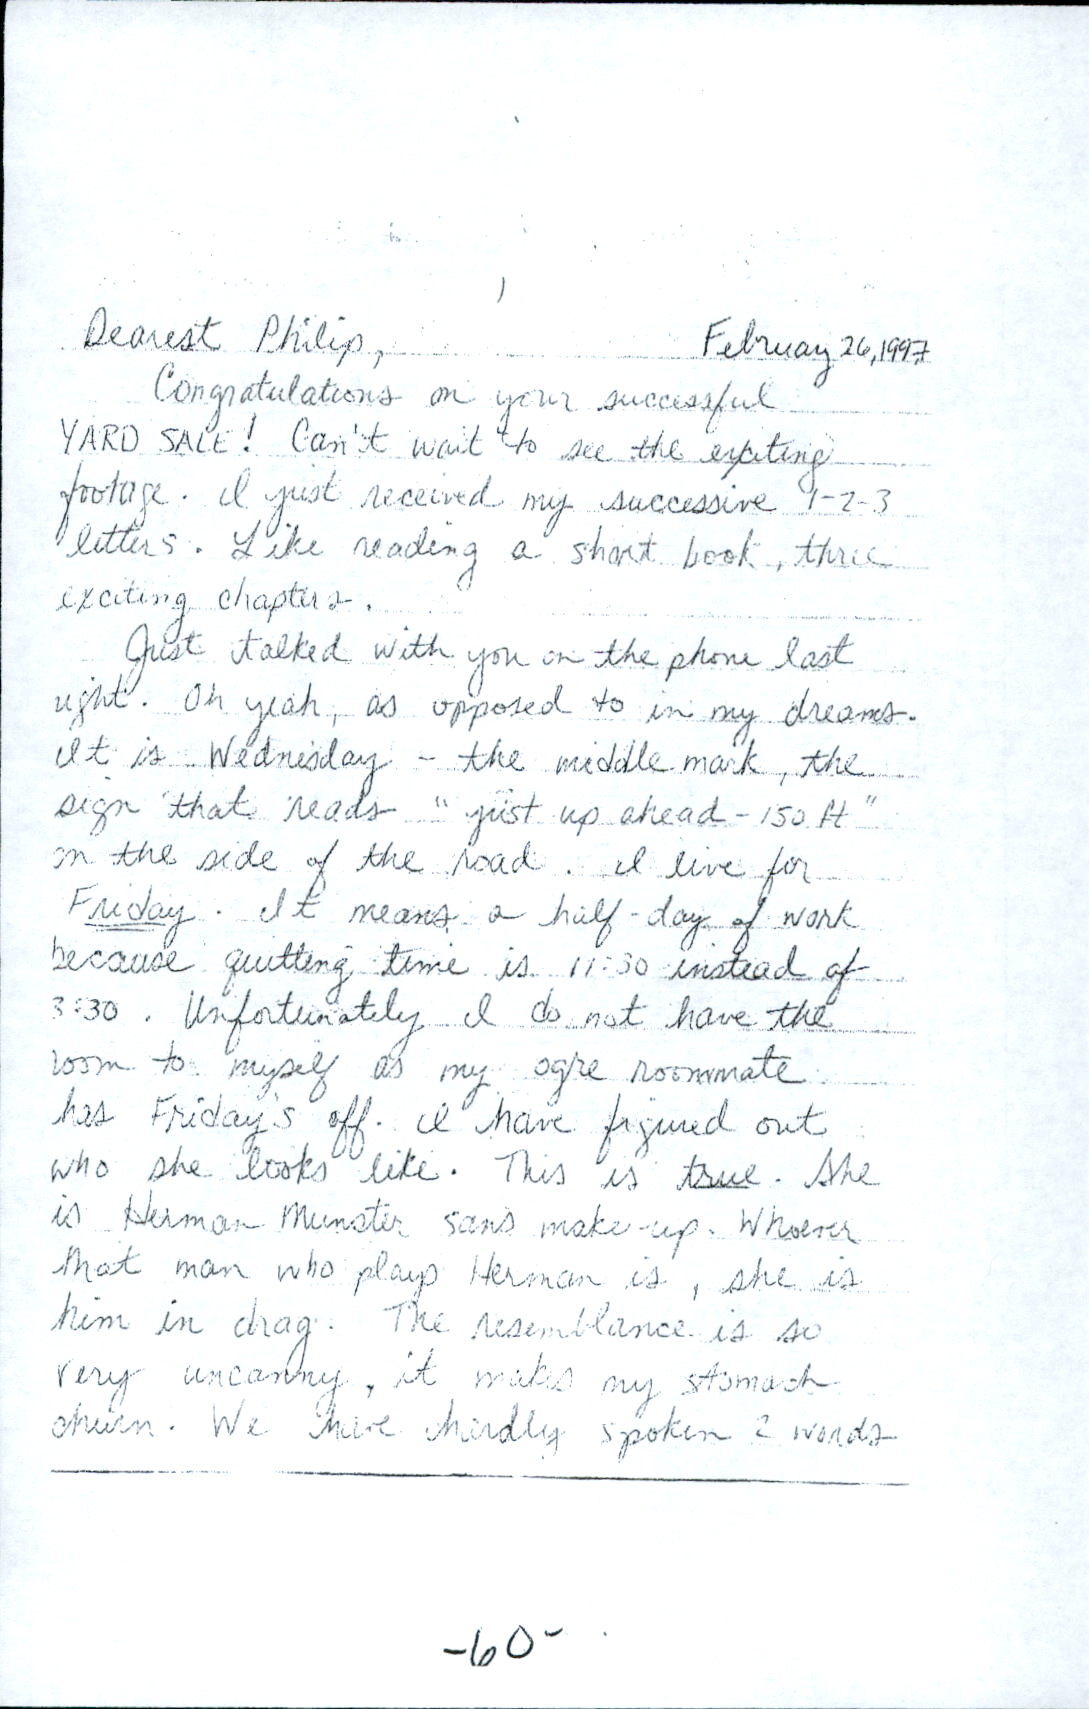 Dearest Philip, February 26, 1997
Congratulations on your successful
YARD SALE! Can't wait to see the exciting
footage. I just received my successive 1-2-3
letters. Like reading a short book, three
exciting chapters.
Just talked with you on the phone last
night. Oh yeah, as opposed to in my dreams.
It is Wednesday - the middle mark, the
sign that reads "just up ahead - 150 ft"
on the side of the road. I live for
Friday. It means a half-day of work
because quitting time is 11:30 instead of
3:30. Unfortunately I do not have the
room to myself as my ogre roommate
has Friday's off. I have figured out
who she looks like. This is true. She
is Herman Munster sans make-up. Whoever
that man who plays Herman is, she is
him in drag. The resemblance is so
very uncanny, it makes my stomach
churn. We have hardly spoken 2 words
-60-